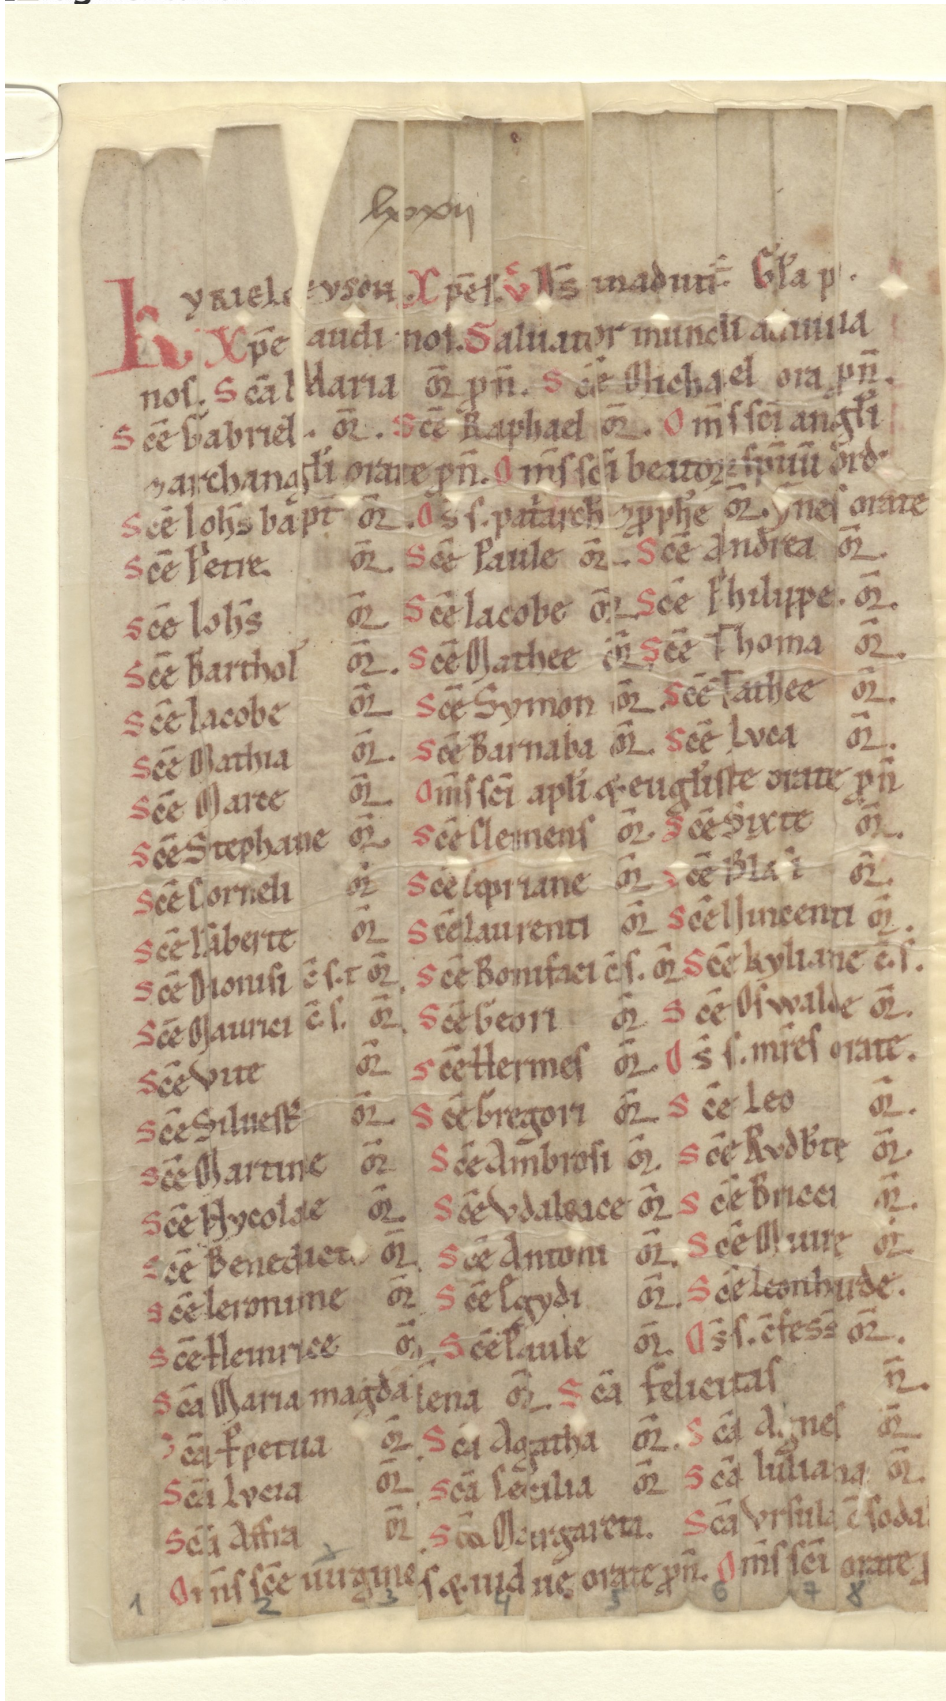 lxxii
Kyrieleyson. Xp̄el. V̄ D̄s in adiut̄. Gl̄a p̄.
Xp̄e audi nos. Saluator mundi adiuua
nos. Sc̄a Maria or̄ p̄n. Sc̄e Michael ora p̄n.
Sc̄e Gabriel. or̄. Sc̄e Raphael or̄. Om̄s sc̄i angl̄i
⁊ archangl̄i orate p̄n. Om̄s sc̄i beatoꝝ sp̄uū ord̄
Sc̄e Ioh̄s bapt̄ or̄. Os̄ s. pat̄arch ⁊ p̄ph̄e or̄. orate
Sc̄e Petre. or̄. Sc̄e Paule or̄. Sc̄e Andrea or̄.
Sc̄e Ioh̄s or̄ Sc̄e Iacobe or̄ Sc̄e Philippe. or̄.
Sc̄e Barthol̄ or̄. Sc̄e Mathee or̄ Sc̄e Thoma or̄.
Sc̄e Iacobe or̄ Sc̄e Symon or̄. Sc̄e Tathee or̄.
Sc̄e Mathia or̄. Sc̄e Barnaba or̄. Sc̄e Luca or̄.
Sc̄e Marce or̄ Om̄s sc̄i apl̄i & eugl̄iste orate p̄n
Sc̄e Stephane or̄. Sc̄e Clemens or̄. Sc̄e Sixte or̄.
Sc̄e Corneli or̄ Sc̄e Cipriane or̄ Sc̄e Blasi or̄.
Sc̄e Lāberte or̄ Sc̄e Laurenti or̄ Sc̄e Vincenti or̄.
Sc̄e Dionisi c̄ s. t or̄. Sc̄e Bonifaci c̄ s. or̄ Sc̄e Kyliane c̄. s.
Sc̄e Maurici c̄. s. or̄. Sc̄e Geori or̄ Sc̄e Oswalde or̄.
Sc̄e Vite or̄ Sc̄e Hermes or̄. Os̄ s. mr̄es orate.
Sc̄e Siluestr̄ or̄. Sc̄e Gregori or̄ Sc̄e Leo or̄.
Sc̄e Martine or̄ Sc̄e Ambrosi or̄. Sc̄e Rvdb̄te or̄.
Sc̄e Nycolae or̄. Sc̄e Vdalrace or̄ Sc̄e Bricci or̄.
Sc̄e Benedicte or̄. Sc̄e Antoni or̄. Sc̄e or̄
Sc̄e Ieronime or̄ Sc̄e Egydi or̄. Sc̄e Leonharde.
Sc̄e Heinrice or̄. Sc̄e Paule or̄. Os̄ s. c̄fess̄ or̄.
Sc̄a Maria magdalena or̄. Sc̄a Felicitas or̄.
Sc̄a Ꝑpetua or̄. Sc̄a Agatha or̄. Sc̄a Agnes or̄
Sc̄a Lucia or̄ Sc̄a Cecilia or̄ Sc̄a Iuliana or̄.
Sc̄a Affra or̄ Sc̄a Margareta. Sc̄a Vrsula c̄ soda
Om̄s sc̄e uirgines & uidue orate p̄n. Om̄s sc̄i orate p
1 2 3 4 5 6 7 8